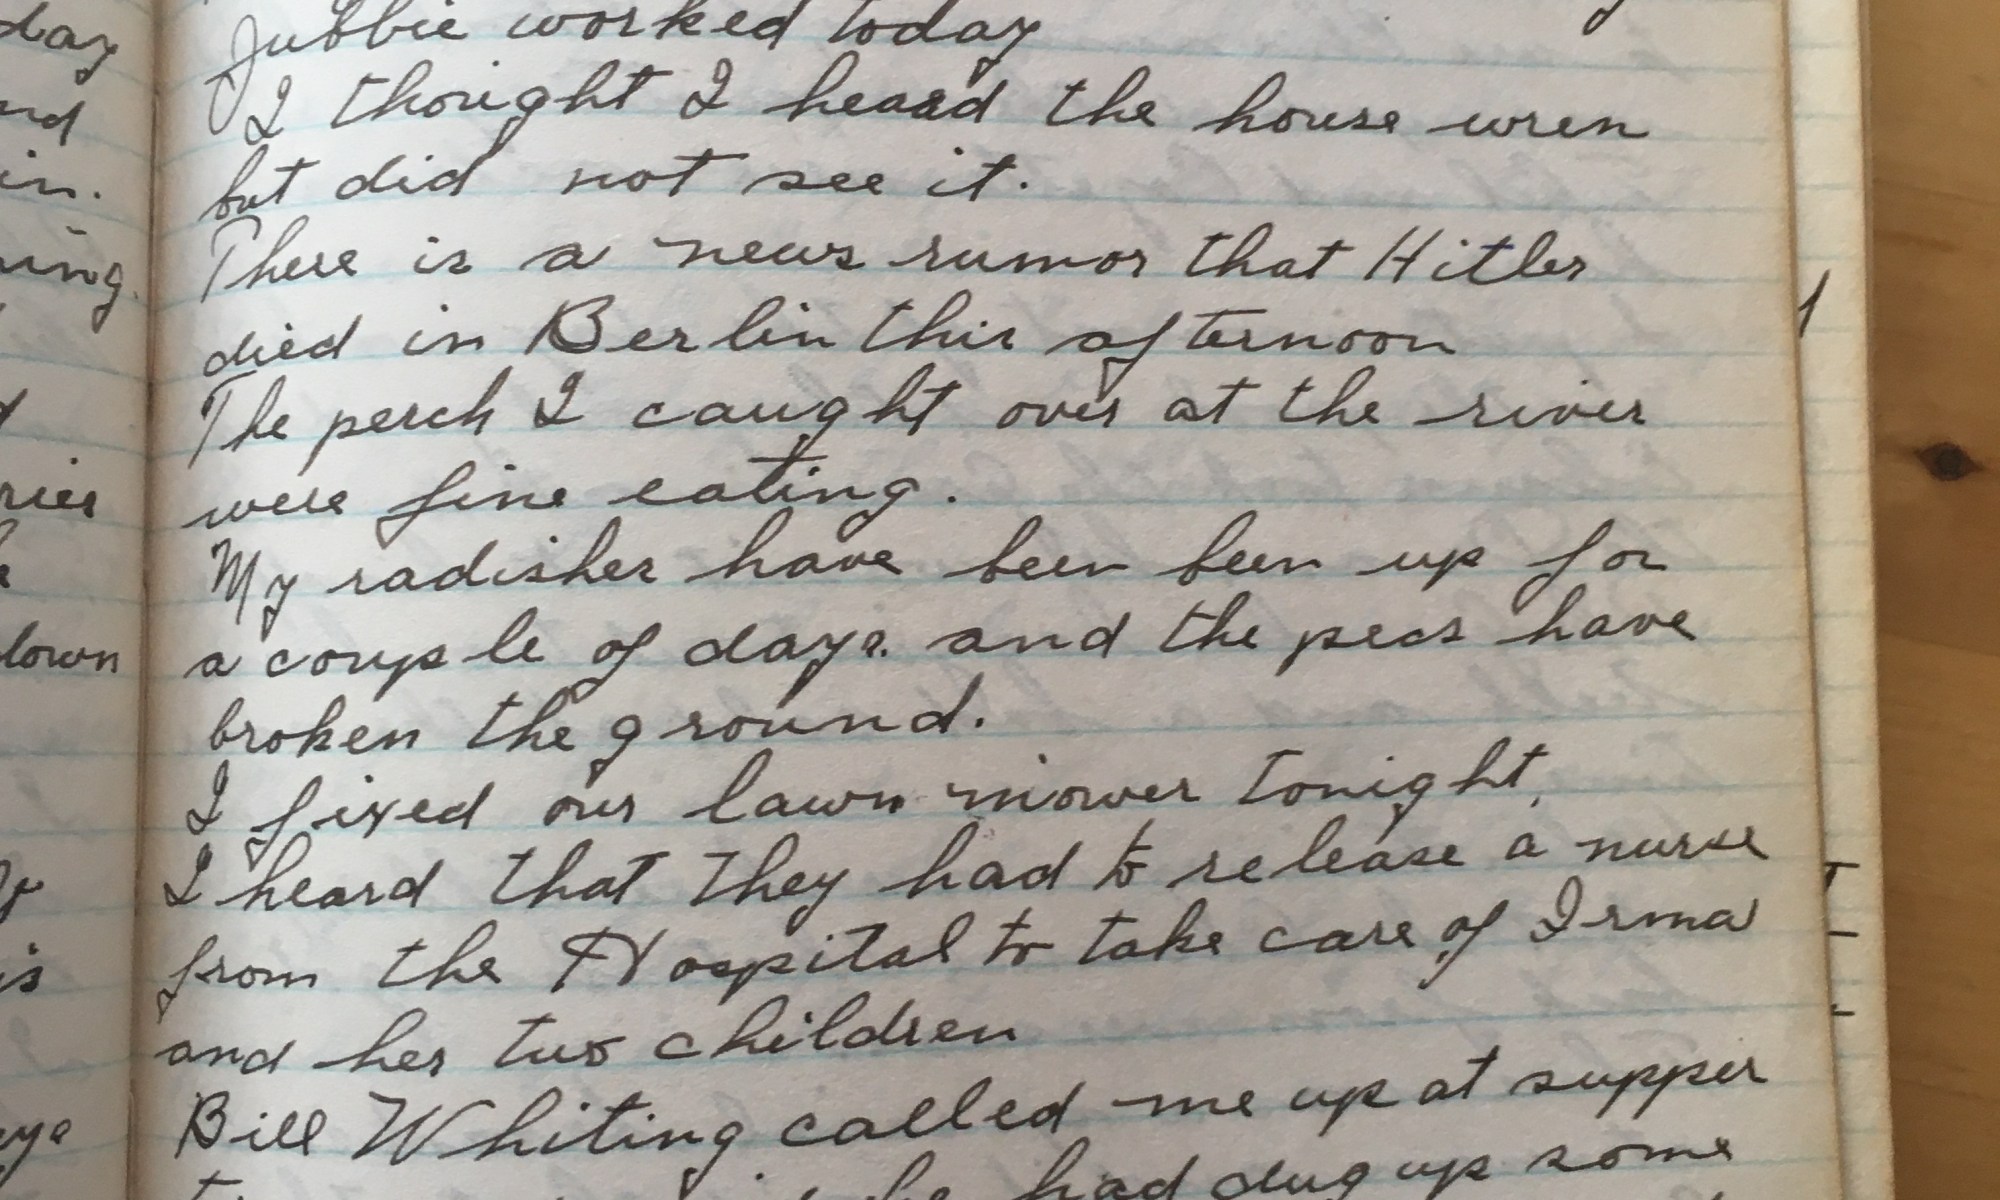 Jubbie worked today
I thought I heard the house wren
but did not see it.
There is a news rumor that Hitler
died in Berlin this afternoon
The perch I caught over at the river
were fine eating.
My radishes have been been up for
a couple of days. and the peas have
broken the ground.
I fixed our lawn mower tonight,
I heard that they had to release a nurse
from the Hospital to take care of Irma
and her two children
Bill Whiting called me up at supper
he had dug up some
day
down
is